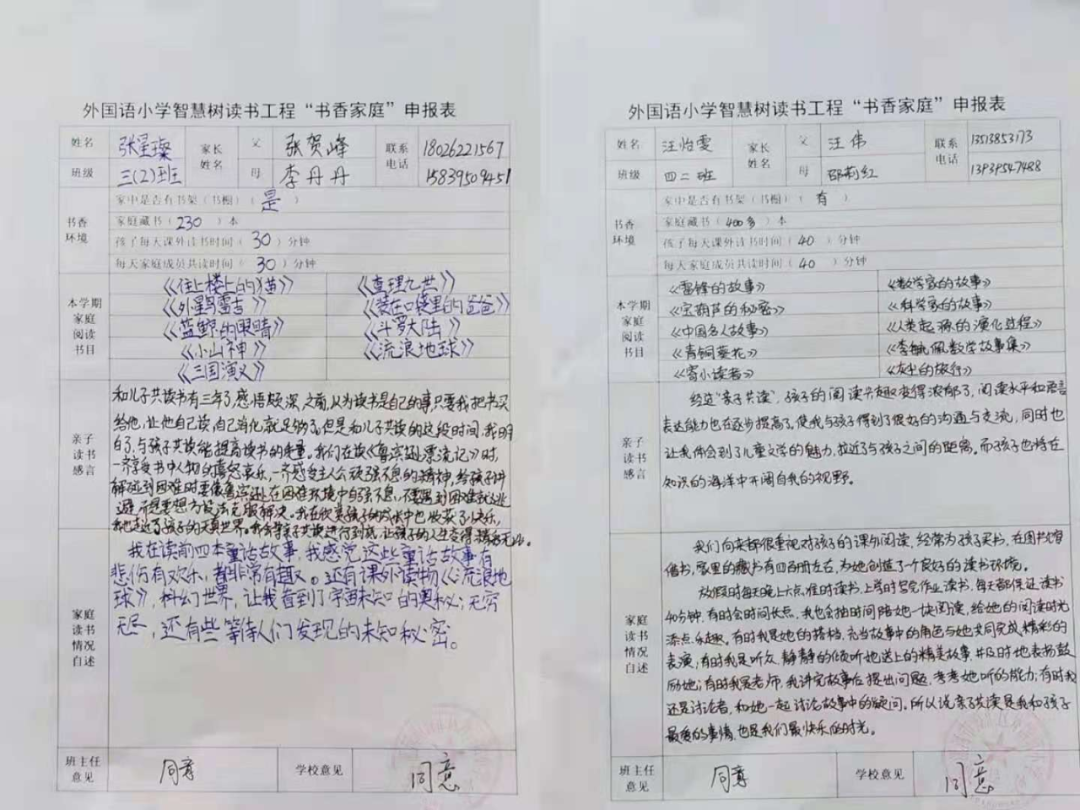 外国语小学智慧树读书工程“书香家庭”申报表
姓名 张星璨 家长姓名 父 张贺峰 联系电话 18026221567
班级 三(2)班 母 李丹丹 15839509451
书香环境
家中是否有书架（书橱）（是）
家庭藏书（230）本
孩子每天课外读书时间（30）分钟
每天家庭成员共读时间（30）分钟
本学期家庭阅读书目
《住上楼上的猫》 《查理九世》
《外星哥雷古》 《装在口袋里的爸爸》
《蓝野的眼睛》 《斗罗大陆》
《小山神》 《流浪地球》
《三国演义》
亲子读书感言
和儿子共读书有三年了感悟颇深,之前,认为读书是自己的事,只要我把书买
给他,让他自己读,自己消化就足够了。但是和儿子共读的这段时间,我明
白了,与孩子共读能提高读书的质量。我们在读《鲁滨逊漂流记》时,
一齐享受书中人物的喜怒哀乐,一齐感受主人公顽强不息的精神,给孩子讲
解碰到困难时要像鲁滨逊在困难环境中自强不息,不要遇到困难就逃
避,而是要想方设法克服解决。我在欣赏孩子的成长中也收获了快乐,
我也走近了孩子的天真世界。我会将亲子共读进行到底,让孩子的人生变得精彩无比。
家庭读书情况自述
我在读前四本童话故事,我感觉这些童话故事有
悲伤有欢乐,都非常有趣。还有课外读物《流浪地
球》,科幻世界,让我看到了宇宙未知的奥秘;无穷
无尽,还有些等待人们发现的未知秘密。
班主任意见 同意 学校意见 同意
外国语小学智慧树读书工程“书香家庭”申报表
姓名 汪怡雯 家长姓名 父 汪伟 联系电话 13513853173
班级 四二班 母 邵莉红 13939547488
书香环境
家中是否有书架（书橱）（有）
家庭藏书（400多）本
孩子每天课外读书时间（40）分钟
每天家庭成员共读时间（40）分钟
本学期家庭阅读书目
《雷锋的故事》 《数学家的故事》
《宝葫芦的秘密》 《科学家的故事》
《中国名人故事》 《人类起源的演化过程》
《青铜葵花》 《李毓佩数学故事集》
《寄小读者》 《灰尘的旅行》
亲子读书感言
经过“亲子共读”,孩子的阅读兴趣变得浓郁了,阅读水平和语言
表达能力也在逐步提高了,使我与孩子得到了很好的沟通与交流,同时也
让我体会到了儿童文学的魅力,拉近了与孩子之间的距离。而孩子也将在
知识的海洋中开阔自我的视野。
家庭读书情况自述
我们向来都很重视对孩子的课外阅读,经常为孩子买书,在图书馆
借书,家里的藏书有四百册左右,为她创造了一个良好的读书环境。
放假时每天晚上六点,准时读书,上学时写完作业读书,每天都保证读书
40分钟,有时会时间长点,我也会抽时间陪她一块阅读,给她的阅读时光
添点乐趣。有时我是她的搭档,充当故事中的角色与她共同完成精彩的
表演;有时我是听众,静静的倾听她送上的精美故事,并及时地表扬鼓
励她;有时我是老师,我讲完故事后提出问题,考考她听的能力;有时我
还是讨论者,和她一起讨论故事中的疑问。所以说亲子共读是我和孩子
最爱的事情,也是我们最快乐的时光。
班主任意见 同意 学校意见 同意